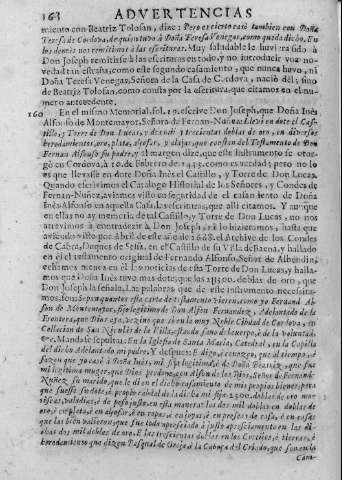 168 ADVERTENCIAS
miento con Beatriz Tolosan, dize: Pero es cierto casò tambien con Doña
Teresa de Cordova, de quien tuvo à Doña Teresa Venegas, como queda dicho. En
lo demàs nos remitimos à las escrituras. Muy saludable le huviera sido à
Don Joseph remitirse à las escrituras en todo, y no introducir vna no-
vedad tan estraña, como este segundo casamiento, que nunca huvo, ni
Doña Teresa Venegas, Señora de la Casa de Cordova, naciò dèl, sino
de Beatriz Tolosan, como consta por la escritura, que citamos en el nu-
mero antecedente.
160 En el mismo Memorial, fol. 19. escrive Don Joseph, que Doña Inès
Alfonso de Montemayor, Señora de Fernan-Nuñez: Llevò en dote el Casti-
llo, y Torre de Don Lucas, y trecientas doblas de oro, en diversos
heredamientos, oro, plata, aljofar, y alajas, que constan del Testamento de Don
Fernan Alfonso su padre, y al margen dize, que este instrumento se otor-
gò en Cordova, à 10. de Febrero de 1433. como es verdad; pero no lo
es que llevasse en dote Doña Inès el Castillo, y Torre de Don Lucas.
Quando escrivimos el Catalogo Historial de los Señores, y Condes de
Fernan-Nuñez, aviamos visto en seguridad de el casamiento de Doña
Inès Alfonso en aquella Casa, las escrituras, que alli citamos. Y aunque
en ellas no ay memoria de tal Castillo, y Torre de Don Lucas, no nos
atrevimos à contradezir à Don Joseph, ni lo hizieramos, hasta que
aviendo visto por Abril de este año de 1682. el Archivo de los Condes
de Cabra, Duques de Sessa, en el Castillo de su Villa de Baena, y hallado
en èl el testamento original de Fernando Alfonso, Señor de Albendin,
echamos menos en èl las noticias de esta Torre de Don Lucas, y halla-
mos que Doña Inès tuvo mas dote, que las 1300. doblas de oro, que
Don Joseph la señala. Las palabras de que este instrumento necessita-
mos, son: Sepan quantos esta carta de testamento vieren, como yo Ferrand Al-
fon de Montemayor, fijo legitimo de Don Alfon Fernandez, Adelantado de la
Frontera, que Dios aya, vezino que so en la muy Noble Ciudad de Cordova, en
Collacion de San Nicolàs de la Villa, estando sano de el cuerpo, è de la voluntad
&c. Mandase sepultar: En la Iglesia de Santa Maria, Catedral, en la Capilla
del dicho Adelantado mi padre. Y despues: E digo, è conozco, que al tiempo, è
sazon que yo casè à Doña Inès, mi fija legitima, è de Doña Beatriz, que fue
mi legitima muger, que Dios perdone, con Alfonso de los Rios, Señor de Fernand
Nuñez su marido, que le di en el dicho casamiento de mis propios bienes, para
que fuesse su dote, è propio cabdal de la dicha mi fija 2300. doblas de oro mo-
riscas, valadies, è de peso justo, en esta manera: las dos mil doblas en doblas de
oro, è en plata, è en aljofar, è en ropas, è en joyas, è en presèas de casa, è en cosas
que las bien valieron, que fue todo apreciado à justo apreciamiento en las di-
chas dos mil doblas de oro. E las trescientas doblas en los Cortijos, è tierras, è
heredamiento que dizen Pasqual de Oreja, è la Cabeça del Criado, que son en la
Cam-